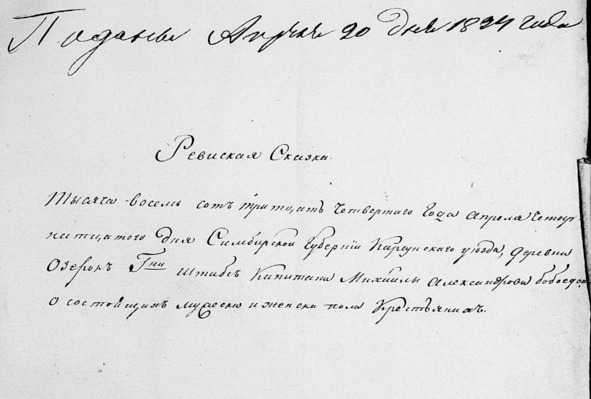 Поданы Апреля 20 дня 1834 года
Ревиская Сказка.
Тысяча восемь сотъ тритцать четвертаго Года апреля четор
натцатого дня Симбирской Губернии Карсунского уезда, деревни
Озерок Гни Штабсъ Капитана Михайлы Александрова
о состоящихъ мужеска и женска пола Крестьянихъ.